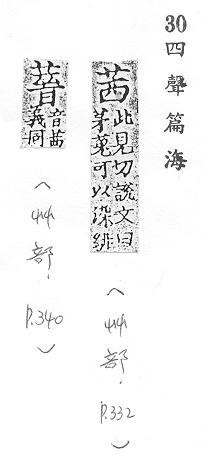 30四聲篇海
茜
此見切說文曰
茅蒐可以染緋
（艸部. P.332）
音茜
義同
（艸部. P.340）